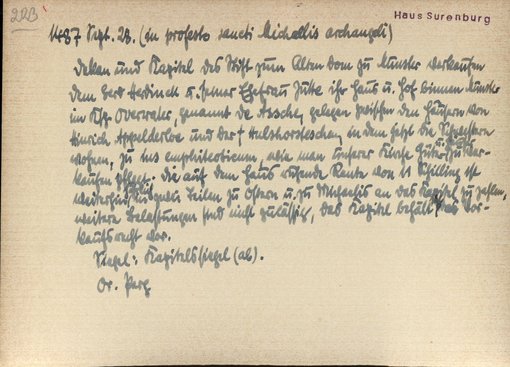 223
Haus Surenburg
1487 Sept. 28. (in profesto sancti Michaelis archangeli)
Dekan und Kapitel des Stift zum Alten Dom zu Münster verkaufen
dem Gerd Herdinck u. seiner Ehefrau Jutte ihr Haus u. Hof binnen Münster
im Ksp. Overwater, genannt de Assche, gelegen zwischen den Häusern von
Hinrich Appelderloe und der Hulshorsteschen in dem jetzt die Schwestern
wohnen, zu ius emphiteoticum, wie man unserer Kirche Güter zu ver-
kaufen pflegt. Die auf dem Haus ruhende Rente von 11 Schilling ist
weiterhin in zwei Teilen zu Ostern u. zu Michaelis an das Kapitel zu zahlen,
weitere Belastungen sind nicht zulässig, das Kapitel behält sich das Vor-
kaufsrecht vor.
Siegel: Kapitelssiegel (ab).
Or. Perg